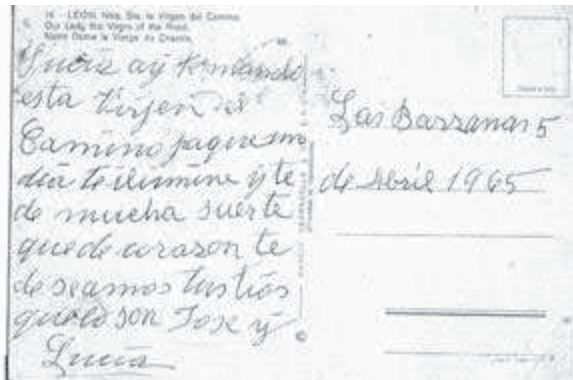 16 - LEÓN. Ntra. Sra. la Virgen del Camino
Our Lady the Virgin of the Road.
Notre Dame la Vierge du Chemin.
Lucia ay te mando
esta Virjen del
Camino paque un
dia te ilumine y te
de mucha suerte
que de corazon te
deseamos tus tios
que lo son Jose y
Lucia
Las Barzanas 5
de Abril 1965